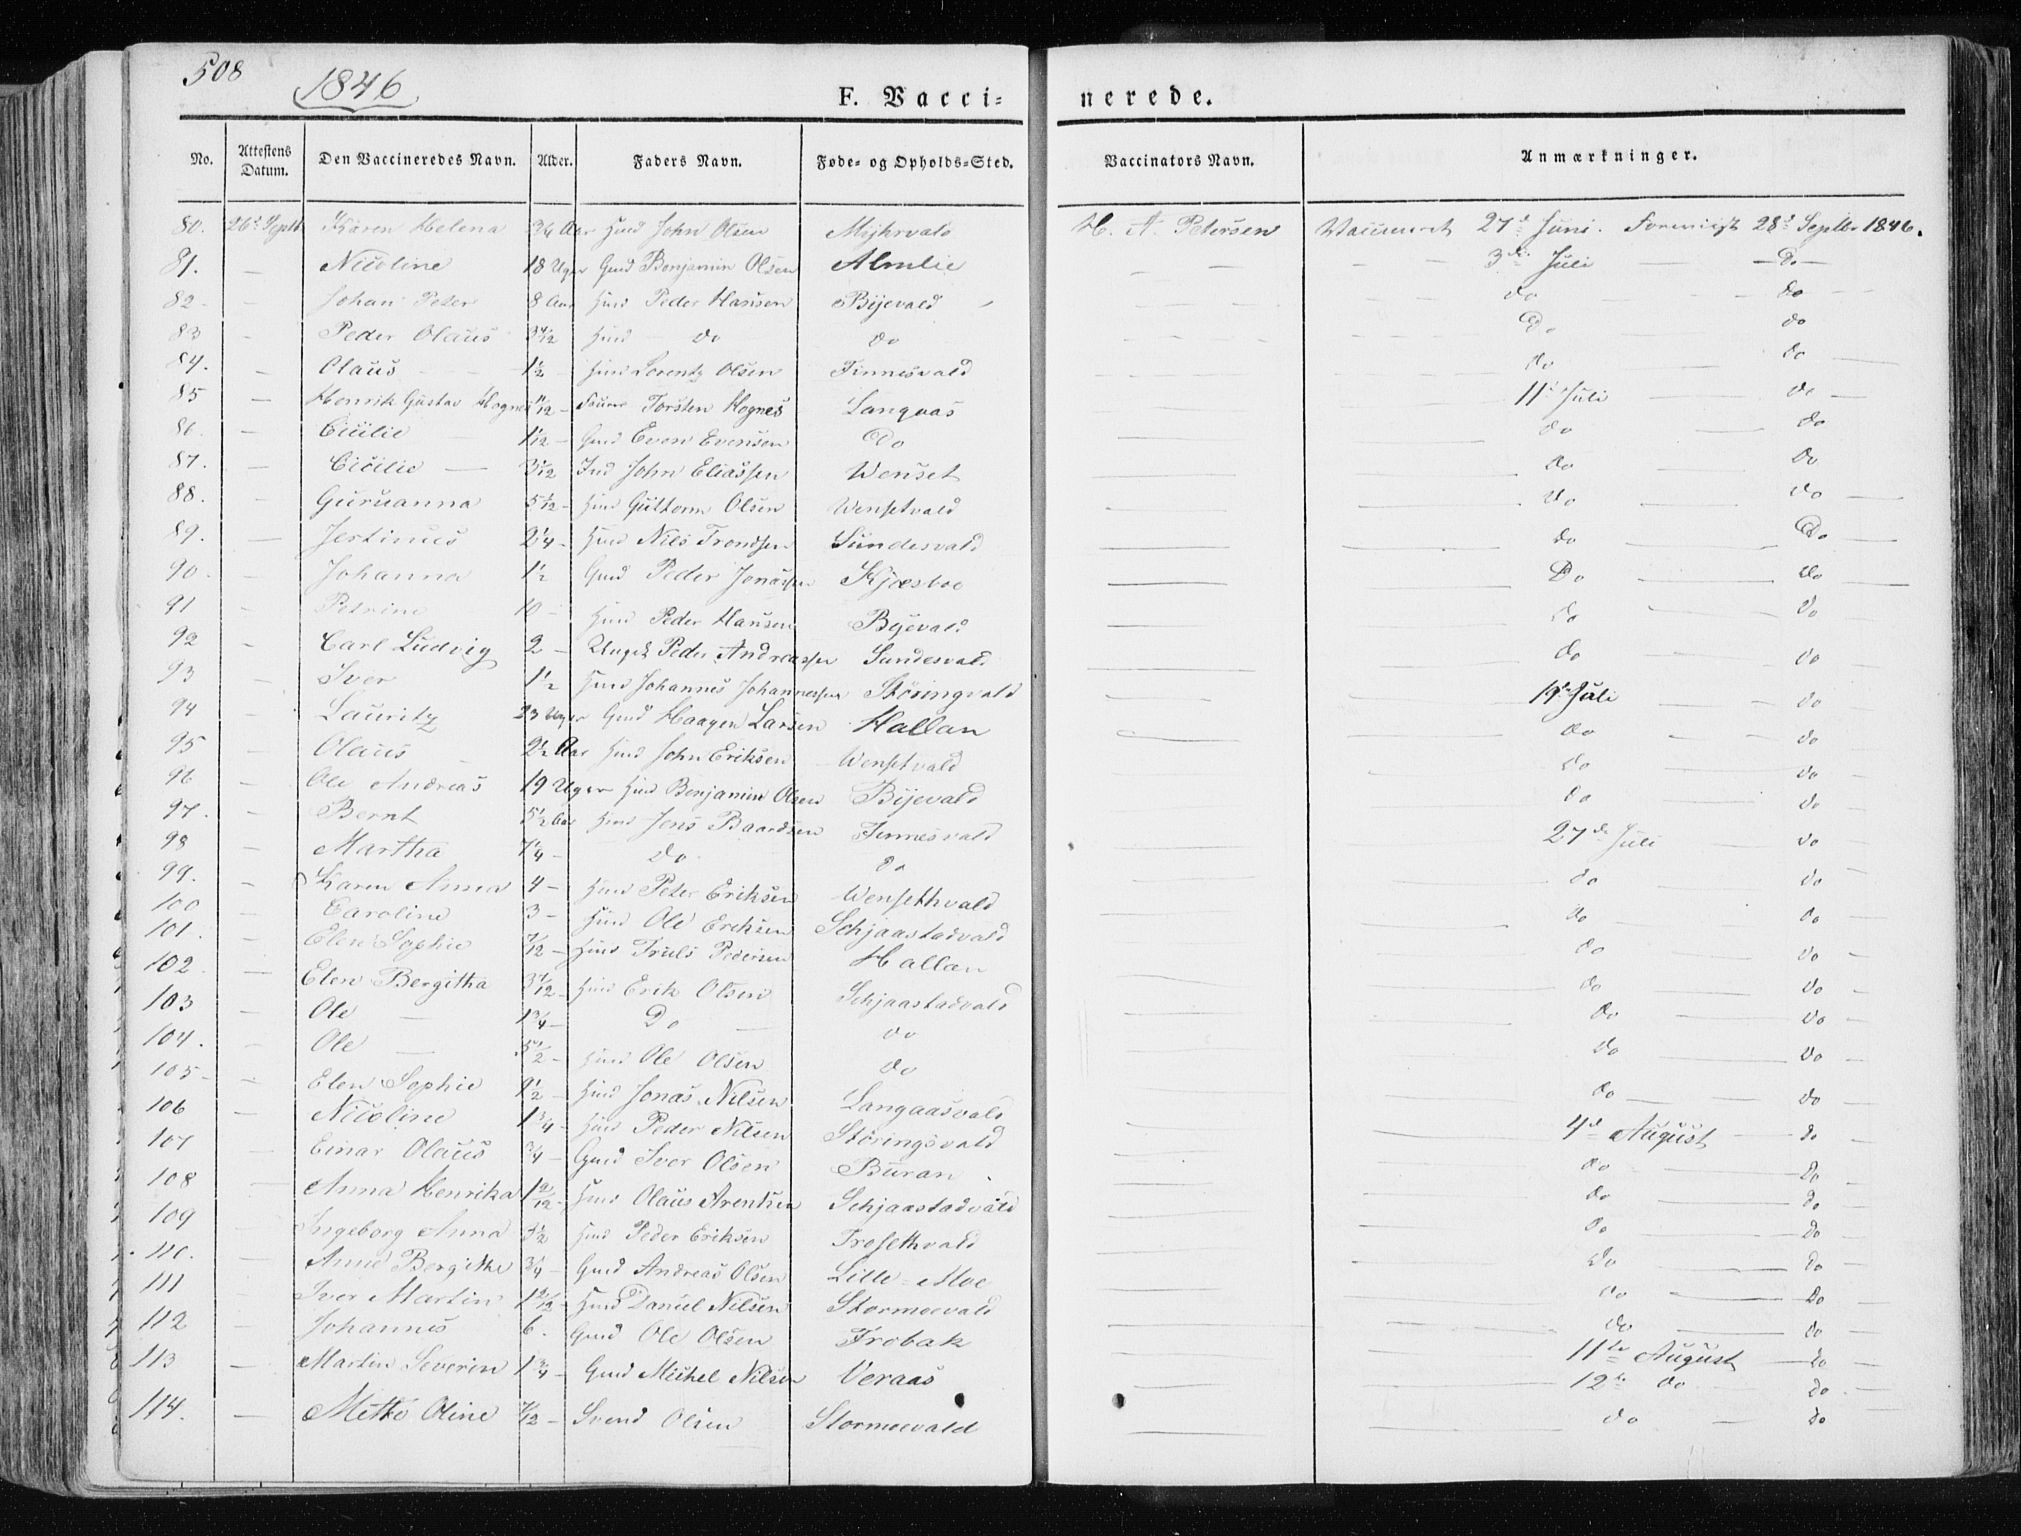 508
1846
F. Vacci= nerede.
No. Attestens Datum. Den Vaccineredes Navn. Alder. Faders Navn. Føde- og Opholds-Sted. Vaccinators Navn. Anmærkninger.
80. 26d Septb Karen Helena 3/4 Aar Huusd John Olsen Mijhrvald H. A. Petersen Vaccineret 27d Juni. Foreviist 28d Septbr 1846.
81. — Nicoline 18 Uger Gmd Benjamin Olsen Almlie — — — — 3die Juli — D. —
82 - — Johan Peter 8 Aar Huusd Peder Hansen Bijevald do do
83 - Peder Olaus 3 4/12 Huusd do do Do do
84. — Olaus 1 1/2 Huusd Lorentz Olsen Finnesvald do do
85 — Henrik Gustav Hognes 11/12 — Torsten Hognes Langaas 11te Juli do
86. — Cicilie 1 1/12 — Gmd Even Evensen Do do do
87. — Cicilie — 3 1/12 Ind John Eliassen Wenset do do
88. — Guruanna 5 1/12 - Huusd Guttorm Olsen Wensetvald do do
89. — Jertinus 2 1/4 - Huusd Nils Trondsen Sundesvald do Do
90. - Johanna 1 1/2 Gmd Peder Jonassen Kjæsboe Do do
91 - Petrine 10 - Huusd Peder Hansen Bijevald do do
92 - Carl Ludvig 2 - Ungk Peder Andreassen Sundesvald do do
93 - Iver 1 1/2 Huusd Johannes Johannessen Støringvald 19de Juli do
94 - Lauritz 23 Uger Gmd Haagen Larsen Hallan do do
95 - Olaus 2 1/2 Aar Huusd John Eriksen Wensetvald do do
96 - Ole Andreas 19 Uger Huusd Benjamin Olsen Bijevald do do
97. - Bernt 5 1/2 Aar Huusd Jens Baardsen Finnesvald 27de Juli do
98 - Martha 7 1/4 - do do do do
99. - Karen Anna 4 - Huusd Peter Eriksen Wensethvald do do
100 - Caroline 3 - Huusd Ole Eriksen Schjaastadvald do do
101. - Elen Sophie 7/12 - Huusd Truls Pedersen Hallan do do
102. - Elen Bergitha 3 7/12 - Huusd Erik Olsen Schjaastadvald do do
103 - Ole — 1 3/4 - Do — do do do
104. - Ole — 5 1/2 - Huusd Ole Olsen do do do
105 - - Elen Sophie 9 1/2 - Huusd Jonas Nilsen Langaasvald do do
106 - Nicoline 1 3/4 - Huusd Peder Nilsen Støringsvald 4d August do
107 - Einar Olaus 3/4 - Gmd Iver Olsen Buran do Do
108 - Anna Henrika 1 2/12 - Huusd Olaus Arentsen Schjaastadvald do do
109 - Ingeborg Anna 5 1/2 Huusd Peder Eriksen Trosethvald do do
110. — Anne Bergitte 3/4 - Gmd Andreas Olsen Lille-Moe do do
111 — Iver Martin 1 2/12 - Huusd Daniel Nilsen Stormoevald do do
112 - Johannes 6. Gmd Ole Olsen Frobak do do
113 — Martin Severin 1 3/4 - Gmd Michel Nilsen Veraas 11te August do
114. — Mette Oline 7/12 — Svend Olsen Stormoevald 12te do do
do do